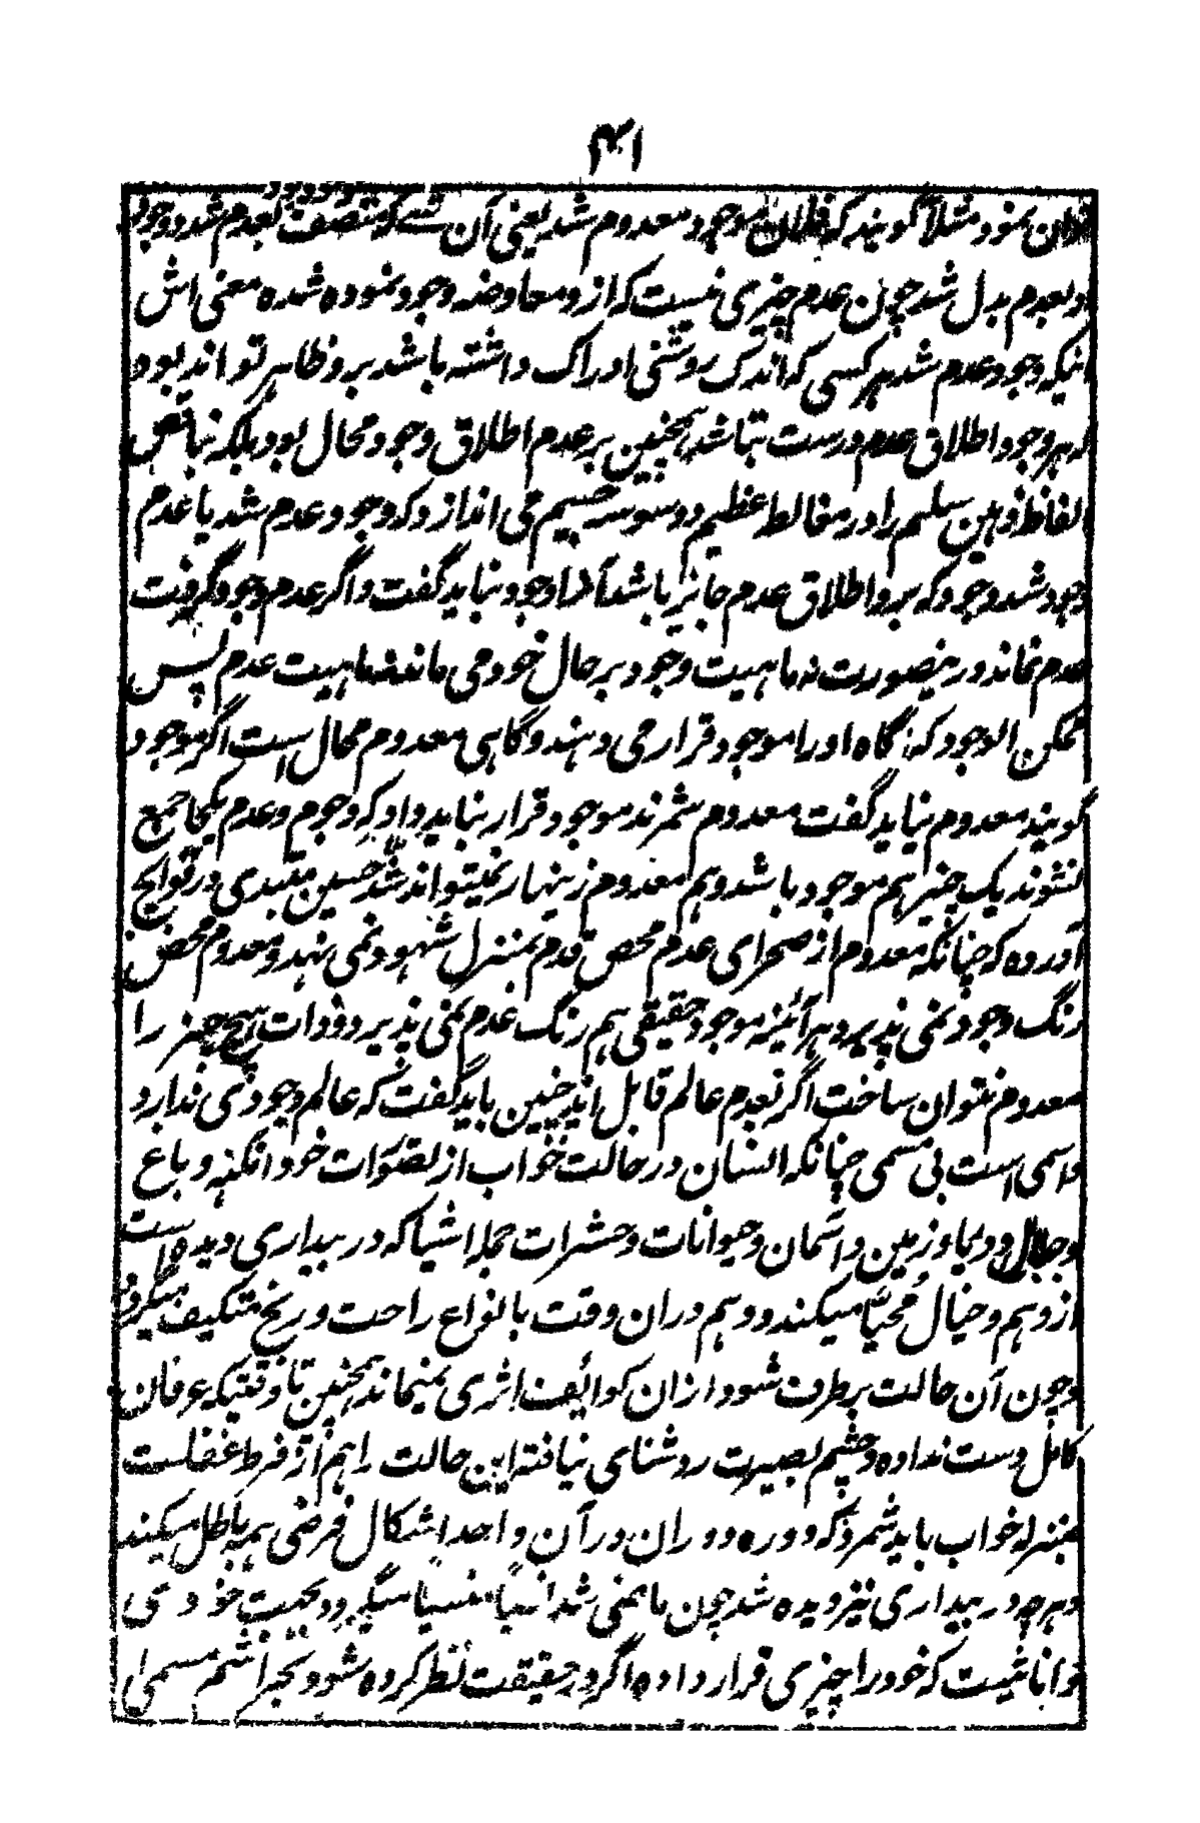 ۴۱
توان نمود مثلاً گویند که فلان موجود معدوم شد یعنی آن شے که متصف بعدم شد وجود
او بعدم بدل شد چون عدم چیزی نیست که ازو معاوضه وجود نموده شده معنی اش
اینکه وجود عدم شد هر کسی که اندک روشنی ادراک داشته باشد برو ظاهر تواند بود
که هر وجود اطلاق عدم درست نباشد همچنین بر عدم اطلاق وجود محال بود بلکه تناقض
الفاظ ذهن سلیم را در مغالطه عظیم و وسوسه جسیم می اندازد که وجود عدم شد یا عدم
وجود شد وجود که برو اطلاق عدم جایز باشد آنرا وجود نباید گفت و اگر عدم وجود گرفت
عدم نماند درینصورت نه ماهیت وجود بر حال خود می ماند نه ماهیت عدم پس
ممکن الوجود که گاه او را موجود قرار می دهند و گاهی معدوم محال است اگر موجود
گویند معدوم نباید گفت معدوم شمرند موجود قرار نباید داد که وجود و عدم یکجا جمع
نشوند یک چیز هم موجود باشد و هم معدوم زینهار نمیتواند شد حسین میبدی در فواتح
آورده که چنانکه معدوم از صحرای عدم محض قدم بمنزل شهود نمی نهد و معدوم محض
رنگ وجود نمی پذیرد هر آئینه موجود حقیقی هم رنگ عدم نمی پذیرد و ذات هیچ چیز را
معدوم نتوان ساخت اگر بعدم عالم قابل اند چنین باید گفت که عالم وجودی ندارد
و اسمی است بی مسمی چنانکه انسان در حالت خواب از تصورات خود امکنه و باغ
و جبال و دریا و زمین و آسمان و حیوانات و حشرات جمله اشیا که در بیداری دیده است
از وهم و خیال مهیا میکند و وهم دران وقت بانواع راحت و رنج متکیف میگردد
و چون آن حالت برطرف شود ازان کوایف اثری نمیماند همچنین تا وقتیکه عرفان
کامل دست نداده و چشم بصیرت روشنای نیافته این حالت را هم از فرط غفلت
بمنزله خواب باید شمرد که دوره و دوران در آن واحد اشکال فرضی همه باطل میکند
و هرچه در بیداری نیز دیده شد چون ما بمنی شد نسیاً منسیا میگردد بحیث خودی
و انانیت که خود را چیزی قرار داده اگر در حقیقت نظر کرده شود بجز اسم مسمی